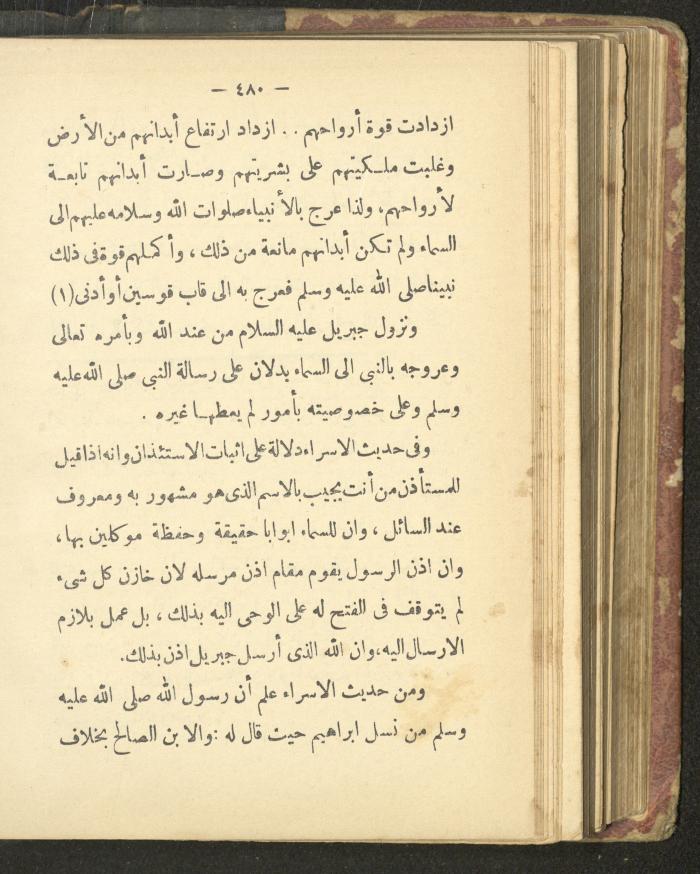 — ٤٨٠ —
ازدادت قوة أرواحهم . . ازداد ارتفاع أبدانهم من الأرض
وغلبت ملكيتهم على بشريتهم وصارت أبدانهم تابعة
لأرواحهم، ولذا عرج بالأنبياء صلوات الله وسلامه عليهم الى
السماء ولم تكن أبدانهم مانعة من ذلك ، وأكملهم قوة فى ذلك
نبينا صلى الله عليه وسلم فعرج به الى قاب قوسين أو أدنى (١)
ونزول جبريل عليه السلام من عند الله وبأمره تعالى
وعروجه بالنبى الى السماء يدلان على رسالة النبي صلى الله عليه
وسلم وعلى خصوصيته بأمور لم يعطها غيره .
وفى حديث الاسراء دلالة على اثبات الاستئذان وانه اذا قيل
للمستأذن من أنت يجيب بالاسم الذى هو مشهور به ومعروف
عند السائل ، وان للسماء ابوابا حقيقة وحفظة موكلين بها ،
وان اذن الرسول يقوم مقام اذن مرسله لان خازن كل شىء
لم يتوقف فى الفتح له على الوحى اليه بذلك ، بل عمل بلازم
الارسال اليه، وان الله الذى أرسل جبريل اذن بذلك.
ومن حديث الاسراء علم أن رسول الله صلى الله عليه
وسلم من نسل ابراهيم حيث قال له : والابن الصالح بخلاف